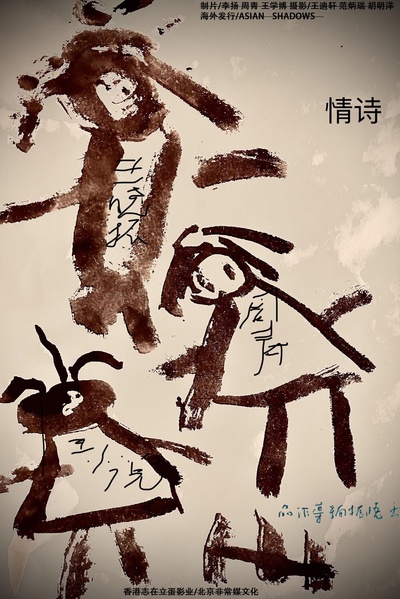 制片/李扬 周青 王学博 摄影/王迪轩 胡明洋
海外发行/ASIAN SHADOWS
情诗
王晓振
周青
王晓振 作品
香港志在立蛋影业/北京非常媒文化